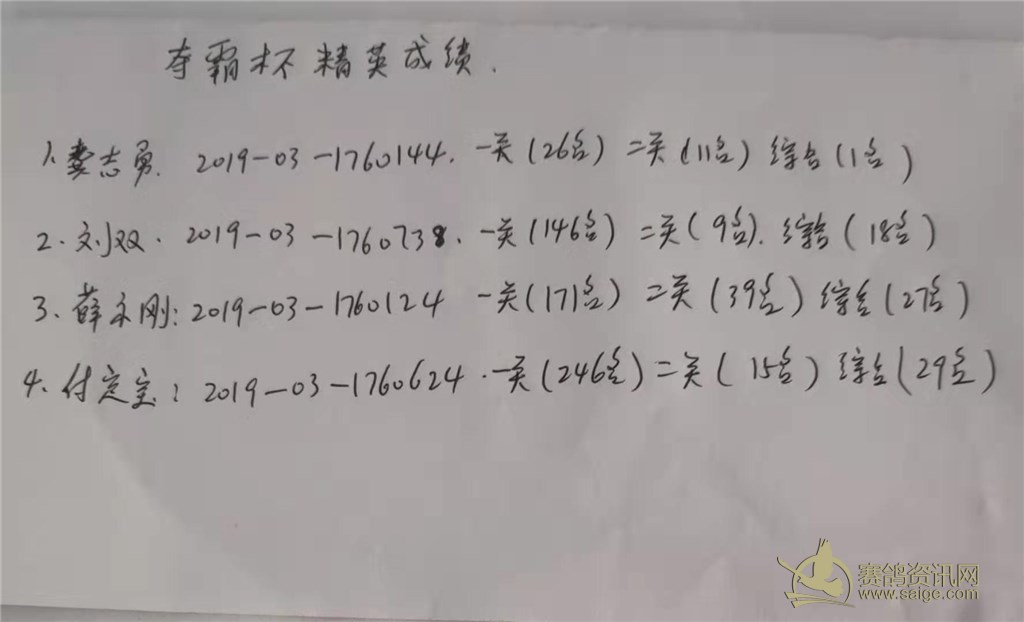 夺霸杯精英成绩.
1.娄志勇. 2019-03-1760144. 一关(26名) 二关(11名) 综合(1名)
2.刘双. 2019-03-1760738. 一关(146名) 二关(9名). 综合(18名)
3.薛永刚:2019-03-1760124 一关(171名) 二关(39名) 综合(27名)
4.付定宝:2019-03-1760624.一关(246名)二关(15名) 综合(29名)
赛鸽资讯网
www.saige.com